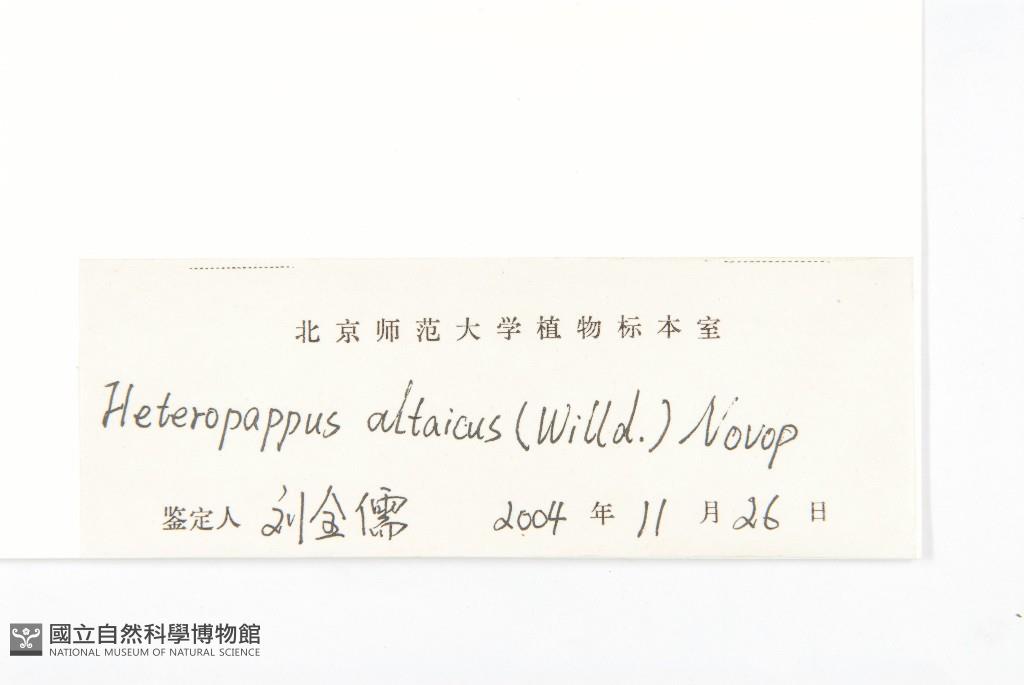 北京师范大学植物标本室
Heteropappus altaicus (Willd.) Novop
鉴定人 刘全儒 2004 年 11 月 26 日
國立自然科學博物館
NATIONAL MUSEUM OF NATURAL SCIENCE